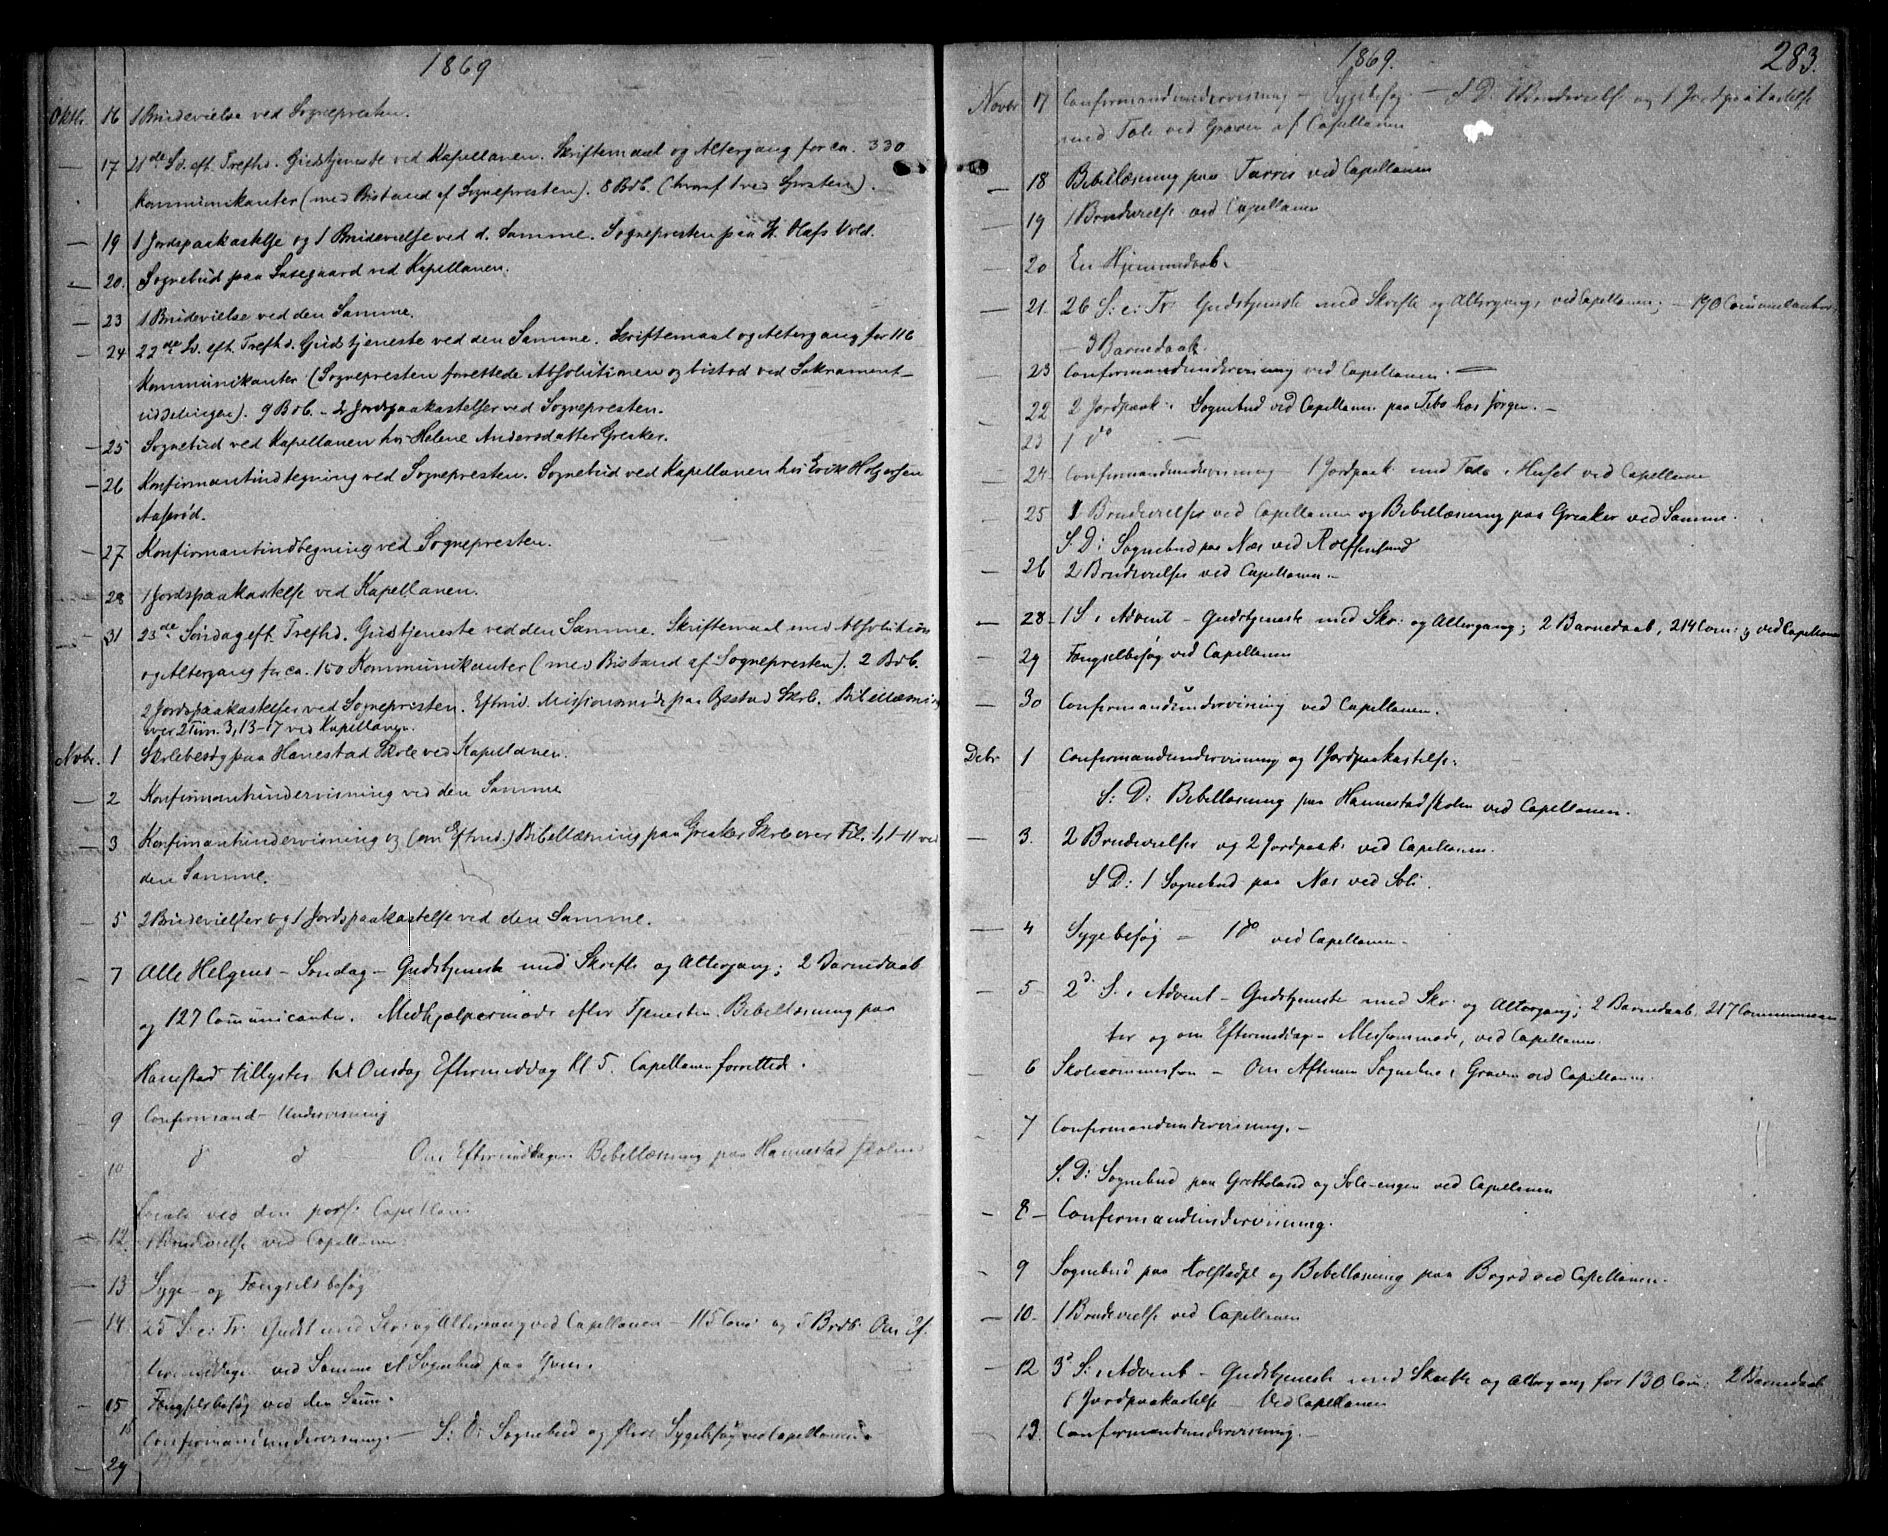 1869
Oktb. 16 1 Brudevielse ved Sognepresten.
— 17 21de Sø. eft. Trefhd. Gudstjeneste ved Kapellanen. Skriftemaal og Altergang for ca. 330
Kommunikanter (med Bistand af Sognepresten). 8 Brb. (hvoraf 1 ved
— 19 1 Jordspaakastelse og 1 Brudevielse ved d. Samme. Sognepresten paa
— 20. Sognebud paa ved Kapellanen.
— 23 1 Brudevielse ved den Samme.
— 24 22de Sø. eft. Trefhd. Gudstjeneste ved den Samme. Skriftemaal og Altergang for 116
Kommunikanter (Sognepresten forrettede Absolutionen og bistod ved Sakrament-
uddelingen). 9 Brb. - 2 Jordspaakastelser ved Sognepresten.
— 25 Sognebud ved Kapellanen hos Helene Andersdatter Greaker.
— 26 Konfirmantindtegning ved Sognepresten. Sognebud ved Kapellanen hos Erik Holgersen
Aasrød.
— 27 Konfirmantindtegning ved Sognepresten.
28 1 Jordspaakastelse ved Kapellanen.
— 31 23de Søndag eft. Trefhd. Gudstjeneste ved den Samme. Skriftemaal med Absolution
og Altergang for ca. 150 Kommunikanter (med Bistand af Sognepresten). 2 Brb.
2 Jordspaakastelser ved Sognepresten. Eftmd. Missionsmøde paa Opstad Skole. Bibellæsning
over 2 Tim. 3, 13-17 ved Kapellanen.
Novbr. 1 Skolebesøg paa Hanestad Skole ved Kapellanen.
— 2 Konfirmantundervisning ved den Samme
— 3 Konfirmantundervisning og (om Eftmd.) Bibellæsning paa Greaker Skole over Fil. 1, 1-11 ved
den Samme.
— 5 2 Brudevielser og 1 Jordspaakastelse ved den Samme.
— 7 Alle Helgens - Søndag - Gudstjeneste med Skrifte og Altergang; 2 Barnedaab
og 127 Comunicanter. Medhjælpermøde efter Tjenesten. Bibellæsning paa
Hanestad tillystes til Onsdag Eftermiddag Kl 5. Capellanen forrettede.
— 9 Confirmand - Undervisning
10 d d Om Eftermiddagen Bibellæsning paa Hannestad Skolen
ved den pers: Capellan.
— 12. 1 Brudevielse ved Capellanen.
— 13 Syge- og Fængselsbesøg
— 14 25 S: e: Tr: Gudst med Skr: og Altergang ved Capellanen - 115 Com: og 5 Brdb. Om Ef-
termiddagen ved Samme et Sognebud paa
— 15 Fængselsbesøg ved den Samme.
16 Confirmandundervisning. — S: D: Sognebud og flere Sygebesøg ved Capellanen.
— 29
1869. 283.
Novbr 17 Confirmandundervisning - Sygebesøg - S. D: 1 Brudevielse og 1 Jordpaakastelse
med Tale ved Graven af Capellanen
— 18 Bibellæsning paa Tarris ved Capellanen
— 19 1 Brudevielse ved Capellanen
— 20 En Hjemmedaab.
— 21. 26 S: e: Tr: Gudstjeneste med Skrifte og Altergang, ved Capellanen; - 190 Comunikanter,
— 3 Barnedaab.
— 23 Confirmandundervisning ved Capellanen. —
22 2 Jordpaak: Sognebud ved Capellanen paa hos Jørgen. -
23 1 do —
— 24. Confirmandundervisning - 1 Jordpaak. med Tale i Huset ved Capellanen
— 25 1 Brudevielse ved Capellanen og Bibellæsning paa Greaker ved Samme.
S. D: Sognebud paa Næs ved Rolfsøsund
— 26 2 Brudevielser ved Capellanen. -
— 28 - 1 S. i Advent - Gudstjeneste med Skr: og Altergang; 2 Barnedaab, 214 Com: ; ved Capellanen
— 29 Fængselbesøg ved Capellanen
— 30 Confirmandundervisning ved Capellanen.
Debr 1 Confirmandundervisning og 1 Jordpaakastelse.
S: D: Bibellæsning paa Hannestadskolen ved Capellanen.
— 3. 2 Brudevielser og 2 Jordpaak: ved Capellanen.
S D: 1 Sognebud paa Næs ved Soli.
— 4 Sygebesøg - 1 do ved Capellanen.
— 5 2d S. i Advent - Gudstjeneste med Skr: og Altergang; 2 Barnedaab, 217 Communican-
ter og om Eftermiddag - Missionsmøde, ved Capellanen.
— 6 Skolecommission - Om Aftenen Sognebud i Graven ved Capellanen.
— 7 Confirmandundervisning. -
S. D: Sognebud paa Gretteland og Soli-engen ved Capellanen
— 8 - Confirmandundervisning.
— 9 Sognebud paa Holstadpl og Bibellæsning paa ved Capellanen.
— 10. 1 Brudevielse ved Capellanen
— 12 3d S: i Advent - Gudstjeneste med Skrifte og Altergang for 130 Com: 2 Barnedaab
1 Jordpaakastelse - Ved Capellanen
— 13. Confirmandundervisning. -